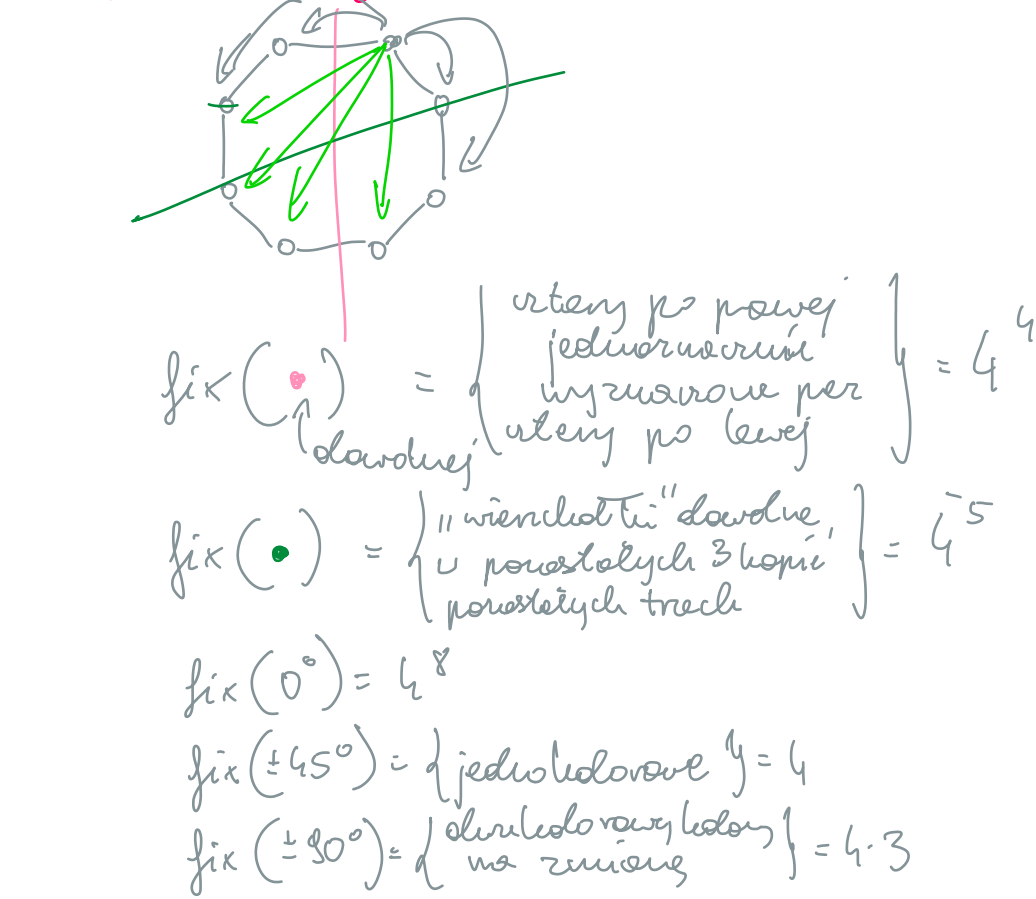 fix( ) = { cztery po prawej
jednoznacznie
wyznaczone przez
cztery po lewej } = 4^4
dowolnej
fix( ) = { "wierzchołki" dowolne,
w pozostałych 3 kopie
pozostałych trzech } = 4^5
fix(0°) = 4^8
fix(±45°) = {jednokolorowe} = 4
fix(±90°) = { dwukolorowy kolory
na zmianę } = 4·3